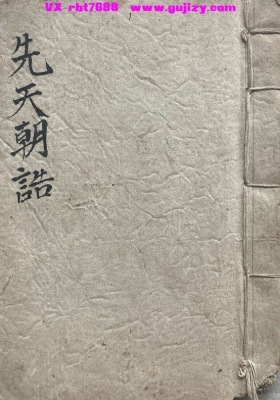 VX-rbt7688 www.gujizy.com
先天朝誥